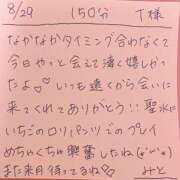 8/29 150分 T様
なかなかタイミング合わなくて
今日やっと会えて凄く嬉しかっ
たよ♡いつも遠くから会いに
来てくれてありがとう!!聖水に
いちごのロリパンツでのプレイ
めちゃくちゃ興奮したね(*'ω'*)
また来月待ってるね♡ みと